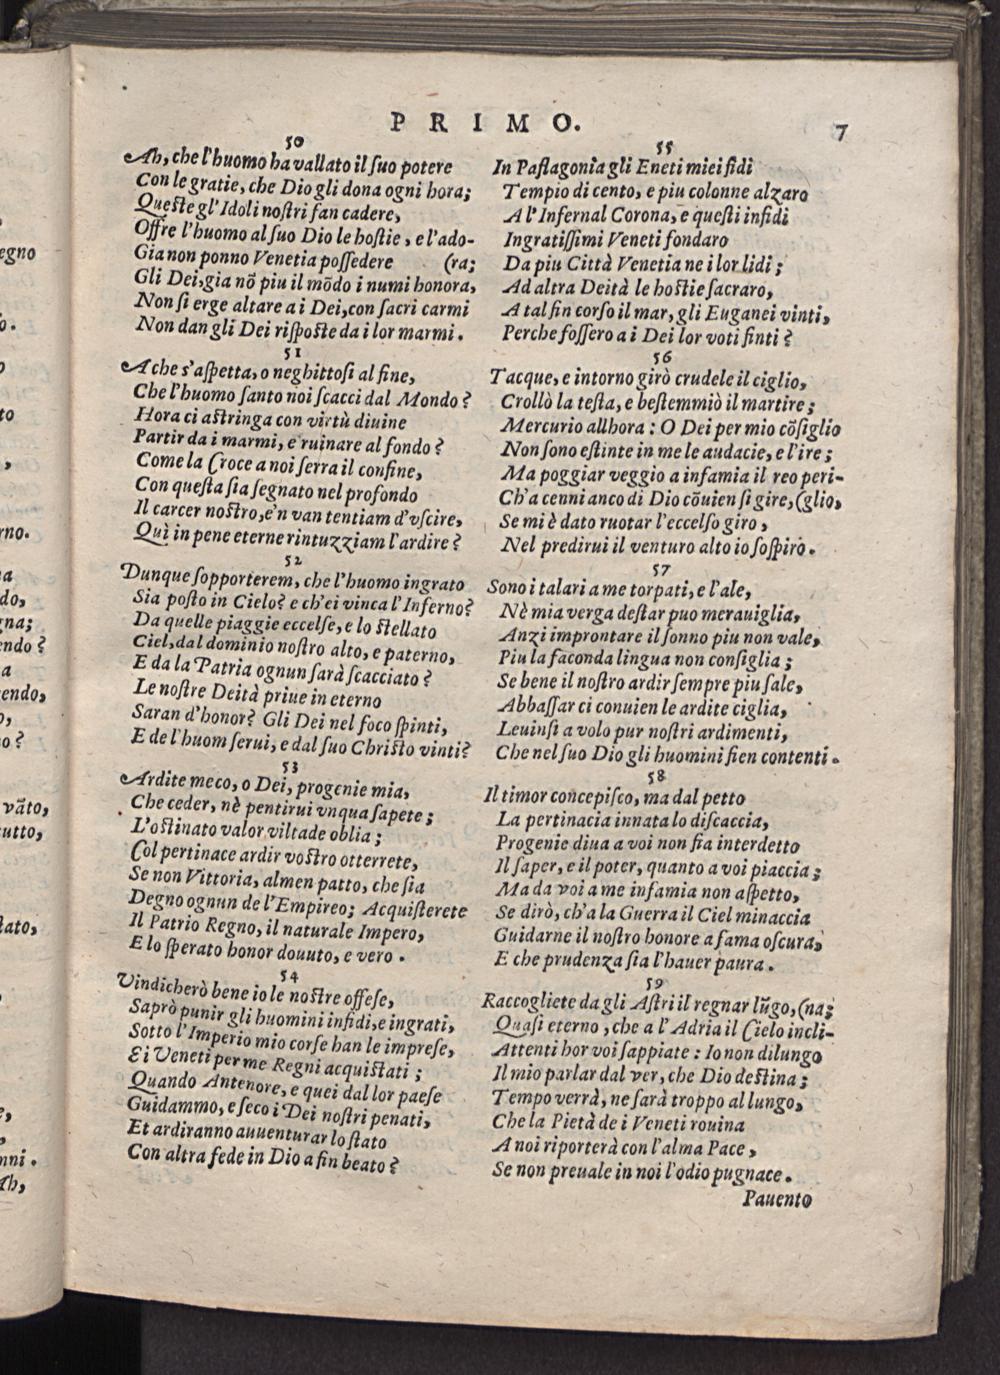 PRIMO.
7
50
Ah, che l'huomo ha vallato il ſuo potere
Con le gratie, che Dio gli dona ogni hora;
Queſte gl'Idoli noſtri fan cadere,
Offre l'huomo al ſuo Dio le hoſtie, e l'ado-
Gia non ponno Venetia poſſedere (ra;
Gli Dei, gia nõ piu il mõdo i numi honora,
Non ſi erge altare a i Dei, con ſacri carmi
Non dan gli Dei riſpoſte da i lor marmi.
51
A che s'aſpetta, o neghittoſi al fine,
Che l'huomo ſanto noi ſcacci dal Mondo?
Hora ci aſtringa con virtù diuine
Partir da i marmi, e ruinare al fondo?
Come la Croce a noi ſerra il confine,
Con queſta ſia ſegnato nel profondo
Il carcer noſtro, e'n van tentiam d'vſcire,
Quì in pene eterne rintuzziam l'ardire?
52
Dunque ſopporterem, che l'huomo ingrato
Sia poſto in Cielo? e ch'ei vinca l'Inferno?
Da quelle piaggie eccelſe, e lo ſtellato
Ciel, dal dominio noſtro alto, e paterno,
E da la Patria ognun ſarà ſcacciato?
Le noſtre Deità priue in eterno
Saran d'honor? Gli Dei nel foco ſpinti,
E de l'huom ſerui, e dal ſuo Chriſto vinti?
53
Ardite meco, o Dei, progenie mia,
Che ceder, nè pentirui vnqua ſapete;
L'oſtinato valor viltade oblia;
Col pertinace ardir voſtro otterrete,
Se non Vittoria, almen patto, che ſia
Degno ognun de l'Empireo; Acquiſterete
Il Patrio Regno, il naturale Impero,
E lo ſperato honor douuto, e vero.
54
Vindicherò bene io le noſtre offeſe,
Saprò punir gli huomini infidi, e ingrati,
Sotto l'Imperio mio corſe han le impreſe,
E i Veneti per me Regni acquiſtati;
Quando Antenore, e quei dal lor paeſe
Guidammo, e ſeco i Dei noſtri penati,
Et ardiranno auuenturar lo ſtato
Con altra fede in Dio a fin beato?
55
In Paflagonia gli Eneti miei fidi
Tempio di cento, e piu colonne alzaro
A l'Infernal Corona, e queſti infidi
Ingratiſſimi Veneti fondaro
Da piu Città Venetia ne i lor lidi;
Ad altra Deità le hoſtie ſacraro,
A tal fin corſo il mar, gli Euganei vinti,
Perche foſſero a i Dei lor voti finti?
56
Tacque, e intorno girò crudele il ciglio,
Crollò la teſta, e beſtemmiò il martire;
Mercurio allhora: O Dei per mio cõſiglio
Non ſono eſtinte in me le audacie, e l'ire;
Ma poggiar veggio a infamia il reo peri-
Ch'a cenni anco di Dio cõuien ſi gire, (glio,
Se mi è dato ruotar l'eccelſo giro,
Nel predirui il venturo alto io ſoſpiro.
57
Sono i talari a me torpati, e l'ale,
Nè mia verga deſtar puo merauiglia,
Anzi improntare il ſonno piu non vale,
Piu la faconda lingua non conſiglia;
Se bene il noſtro ardir ſempre piu ſale,
Abbaſſar ci conuien le ardite ciglia,
Leuinſi a volo pur noſtri ardimenti,
Che nel ſuo Dio gli huomini fien contenti.
58
Il timor concepiſco, ma dal petto
La pertinacia innata lo diſcaccia,
Progenie diua a voi non fia interdetto
Il ſaper, e il poter, quanto a voi piaccia;
Ma da voi a me infamia non aſpetto,
Se dirò, ch'a la Guerra il Ciel minaccia
Guidarne il noſtro honore a fama oſcura,
E che prudenza ſia l'hauer paura.
59
Raccogliete da gli Aſtri il regnar lũgo, (na;
Quaſi eterno, che a l'Adria il Cielo incli-
Attenti hor voi ſappiate: Io non dilungo
Il mio parlar dal ver, che Dio deſtina;
Tempo verrà, ne ſarà troppo al lungo,
Che la Pietà de i Veneti rouina
A noi riporterà con l'alma Pace,
Se non preuale in noi l'odio pugnace.
Pauento
egno
o.
to
,
rno.
na
do,
gna;
endo?
a
cendo,
o,
no?
vãto,
tutto,
ſtato,
e,
nni.
Ah,